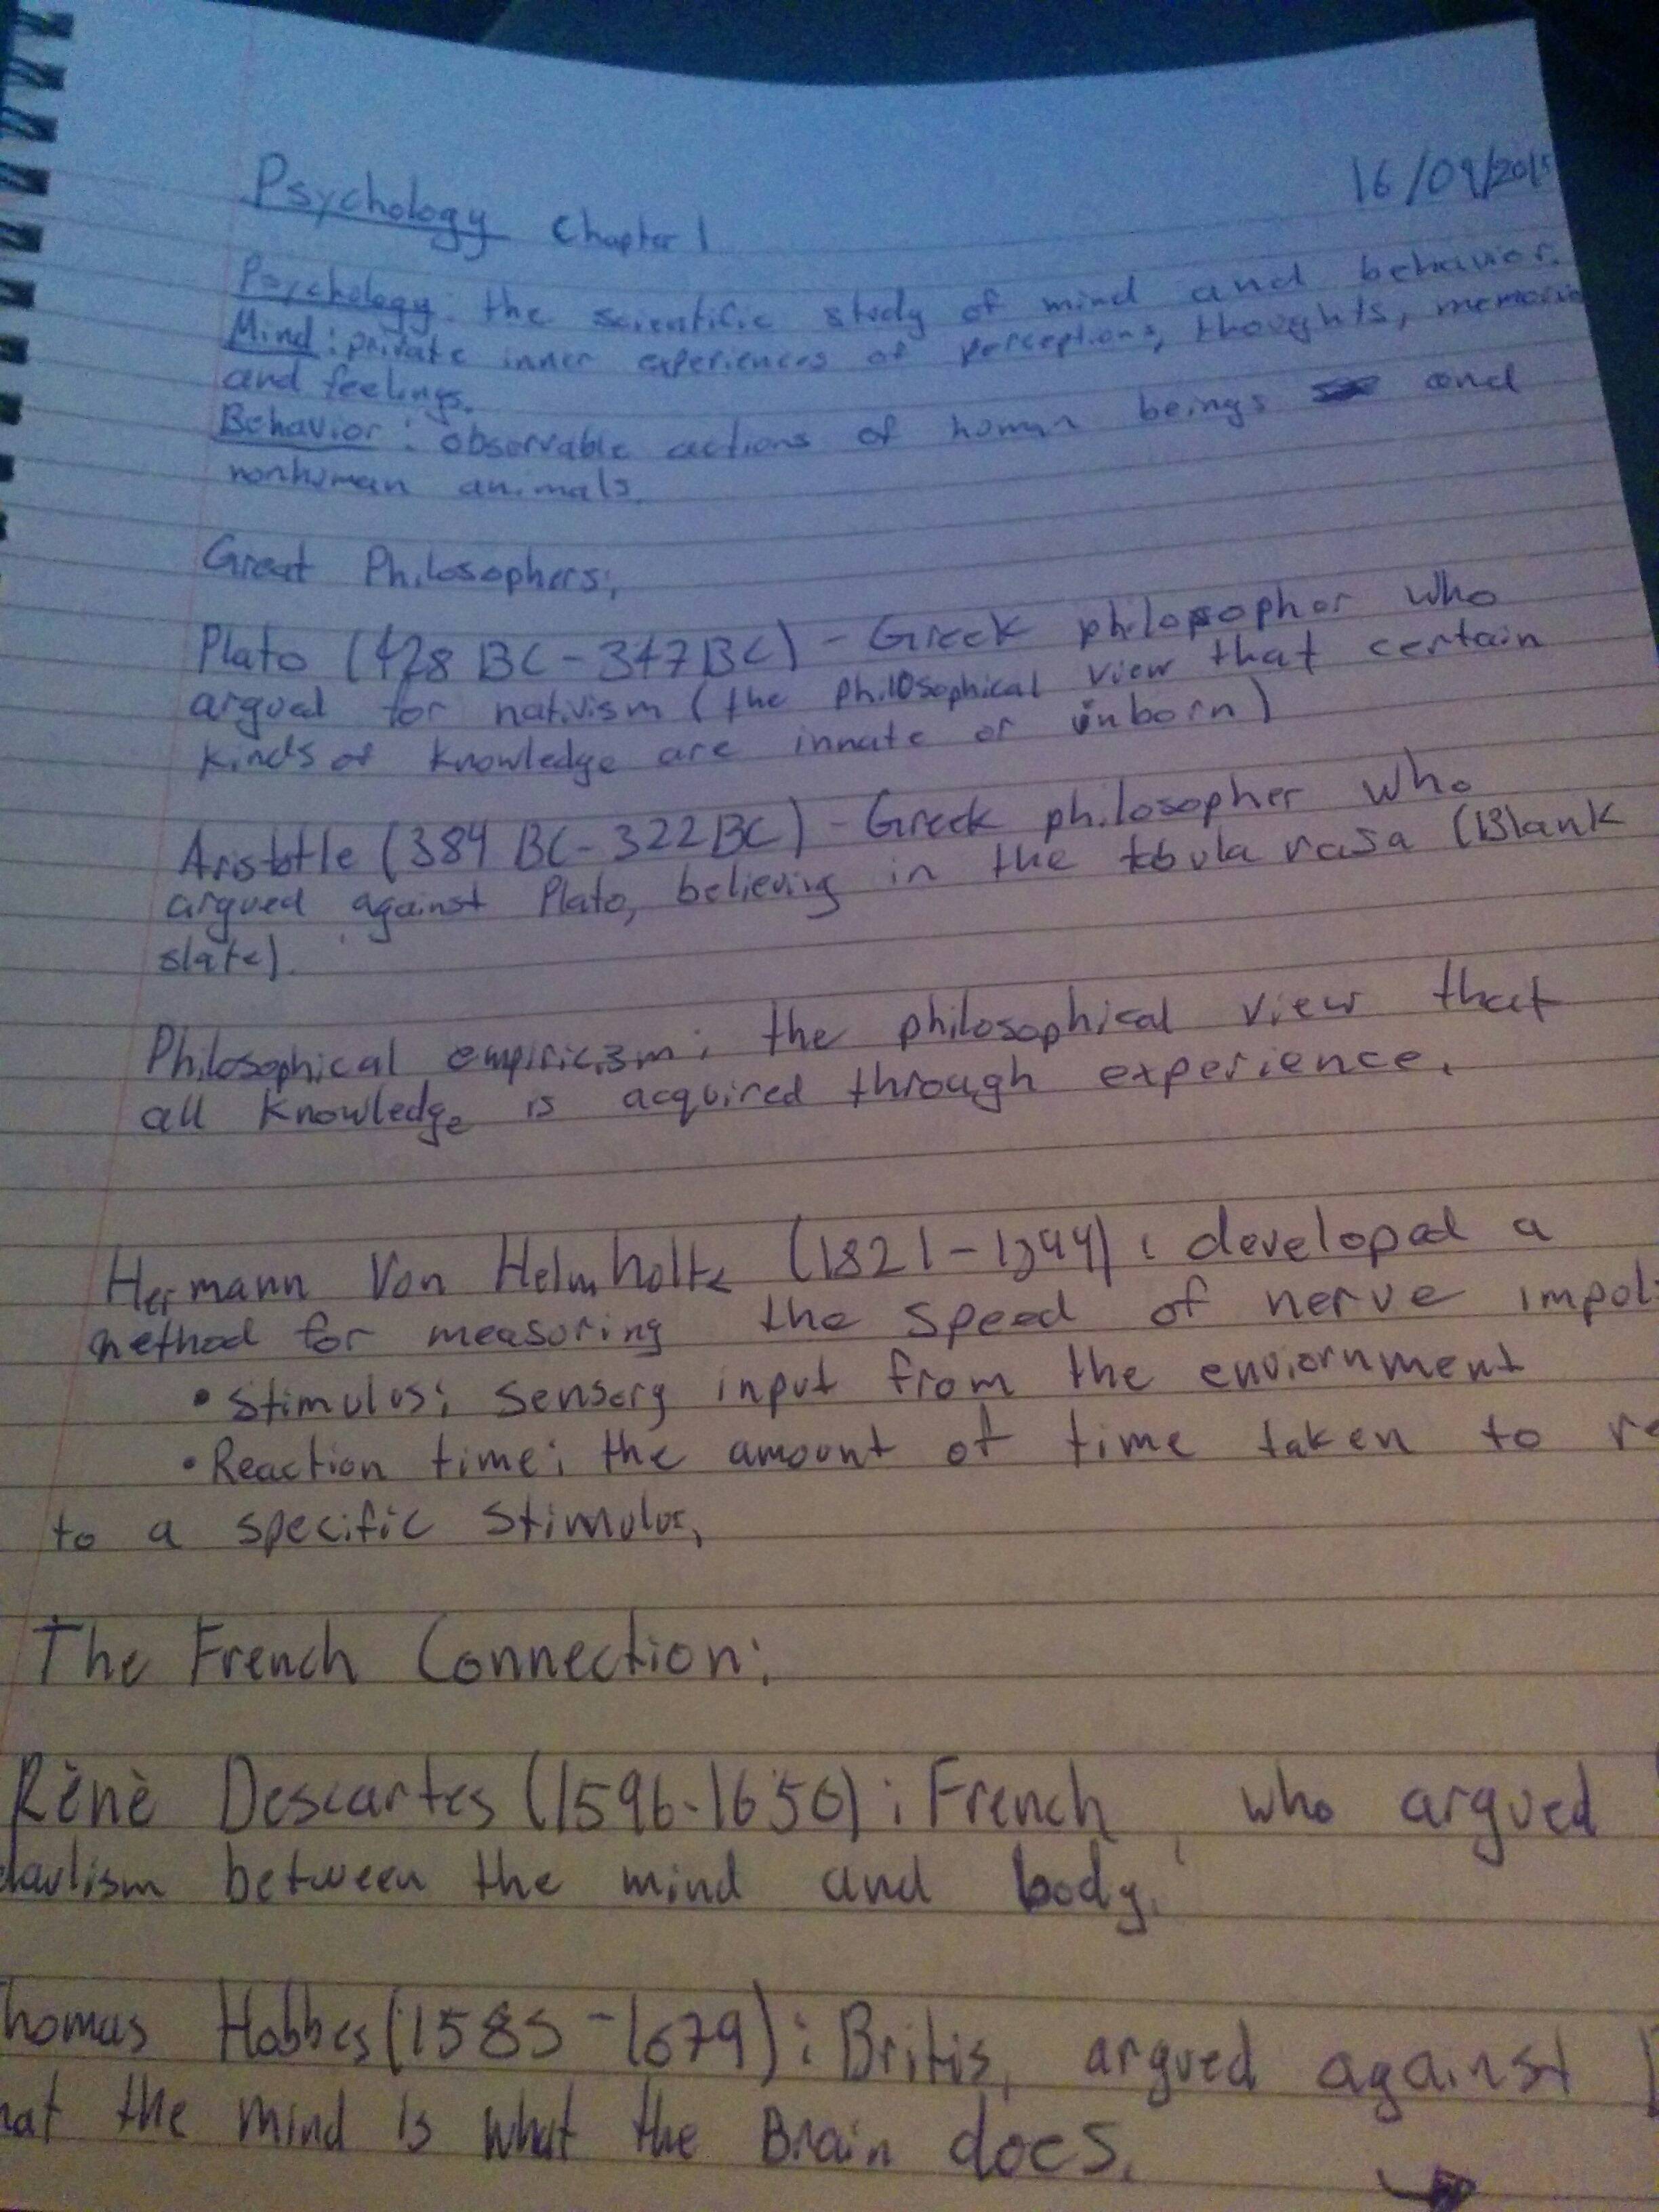 Psychology Chapter 1
16/09/2015
Psychology: the scientific study of mind and behavior.
Mind: private inner experiences of perceptions, thoughts, memorie
and feelings.
Behavior: observable actions of human beings and
nonhuman animals.
Great Philosophers:
Plato (428 BC-347BC) - Greek philosopher who
argued for nativism (the philosophical view that certain
kinds of knowledge are innate or inborn)
Aristotle (384 BC-322BC) - Greek philosopher who
argued against Plato, believing in the tabula rasa (Blank
slate).
Philosophical empiricism: the philosophical view that
all knowledge is acquired through experience.
Hermann Von Helmholtz (1821-1894): developed a
method for measuring the speed of nerve impul
• Stimulus: Sensory input from the enviornment
• Reaction time: the amount of time taken to re
to a specific stimulus,
The French Connection:
Rènè Descartes (1596-1650): French, who argued
daulism between the mind and body.
homas Hobbes (1585-1679): Britis, argued against
hat the mind is what the Brain does.